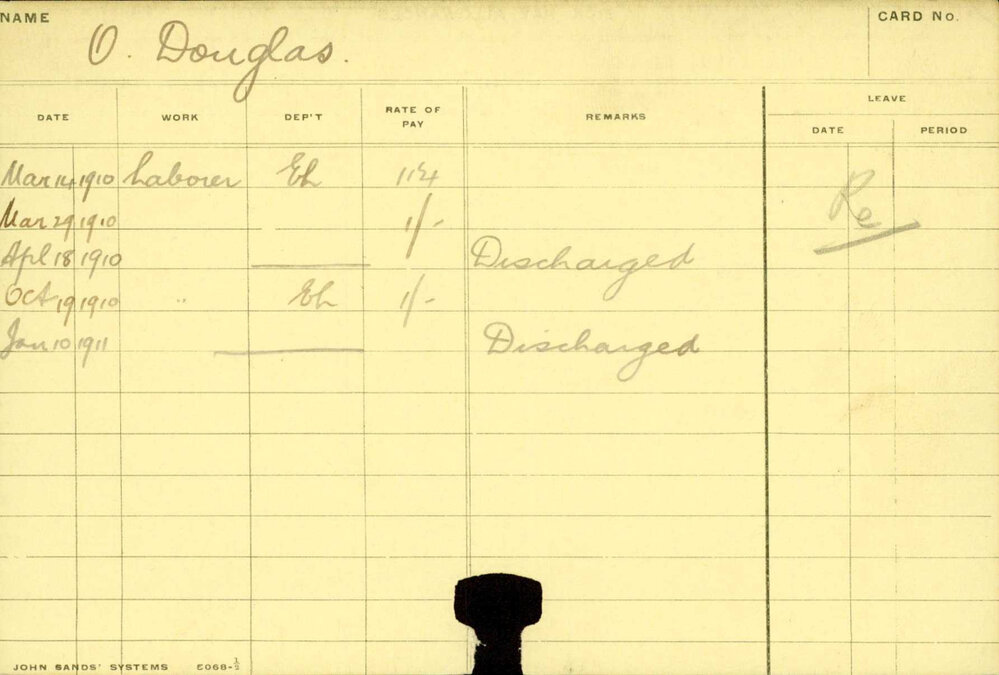 NAME O. Douglas. CARD No.
LEAVE
DATE WORK DEP'T RATE OF PAY REMARKS DATE PERIOD
Mar 14 1910 Laborer Eh
Mar 29 1910 1/-
Apl 18 1910 Discharged
Oct 19 1910 " Eh 1/-
Jan 10 1911 Discharged
Re
JOHN SANDS' SYSTEMS E068-½